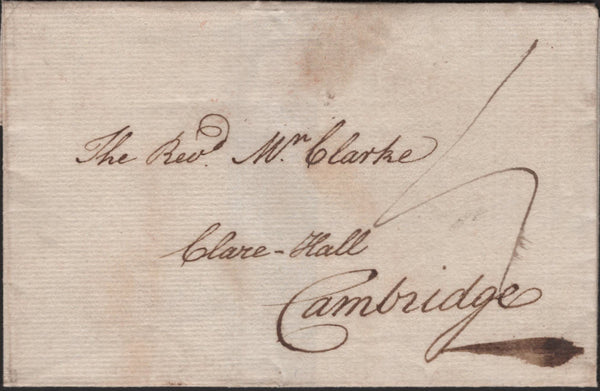 The Revd. Mr. Clarke
Clare-Hall
Cambridge